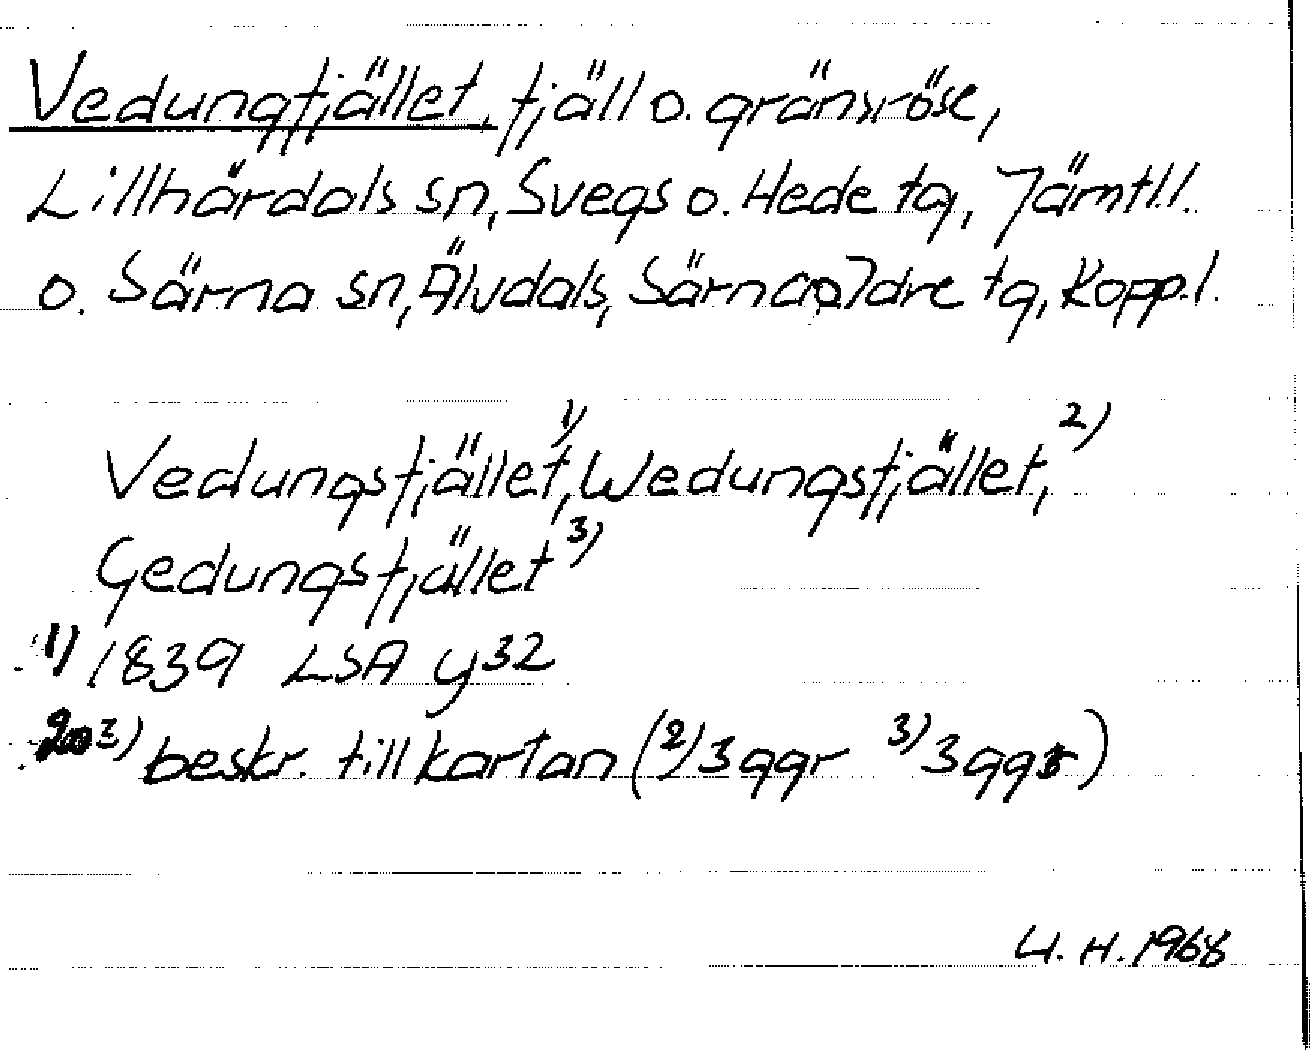 Vedungfjället, fjäll o. gränsröse,
Lillhärdals sn, Svegs o. Hede tg, Jämtl.l.
o. Särna sn, Älvdals, Särna o Idre tg, Kopp.l.
Vedungsfjället,1) Wedungsfjället,2)
Gedungsfjället3)
1) 1839 LSA y32
2 o 3) beskr. till kartan (2) 3 ggr 3) 3 ggr)
U. H. 1968